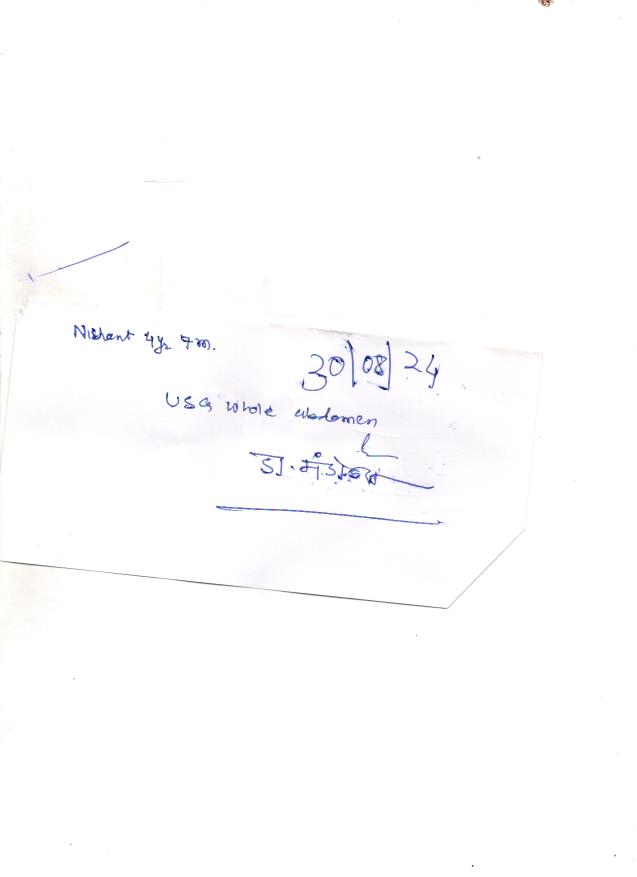 Nishant 4yr 7m.
30/08/24
USG whole abdomen
डा.